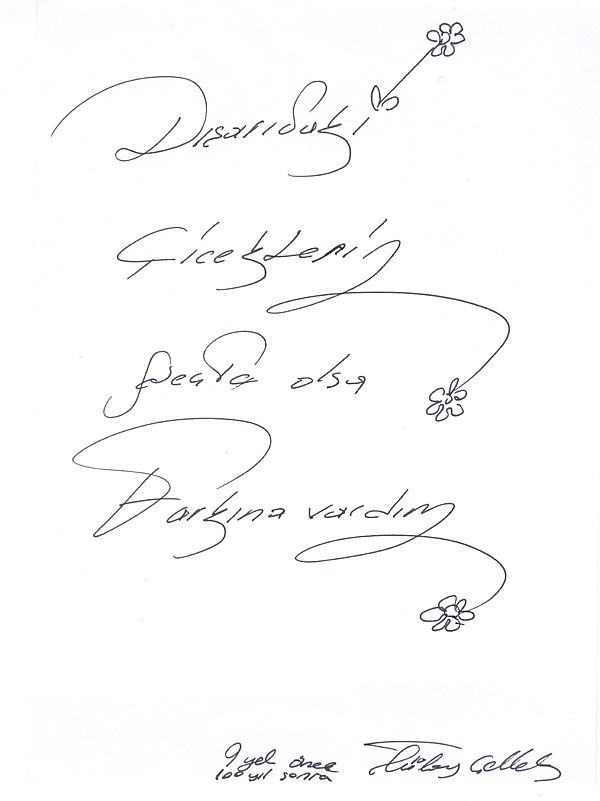 Dışarıdaki
Çiçeklerin
olsa
Farkına vardım
9 yıl önce
100 yıl sonra
Tülay Çellek